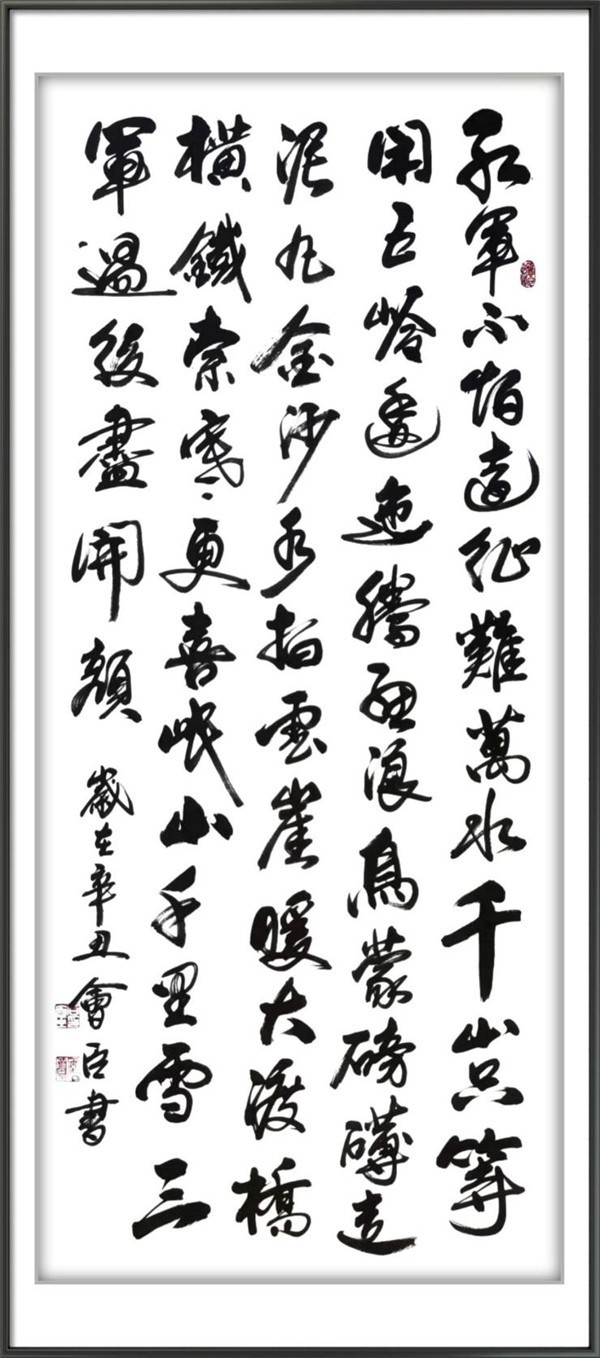 紅軍不怕遠征難萬水千山只等
閑五岭逶迤騰細浪烏蒙磅礴走
泥丸金沙水拍雲崖暖大渡橋
橫鐵索寒更喜岷山千里雪三
軍過後盡開顏
歲在辛丑會臣書